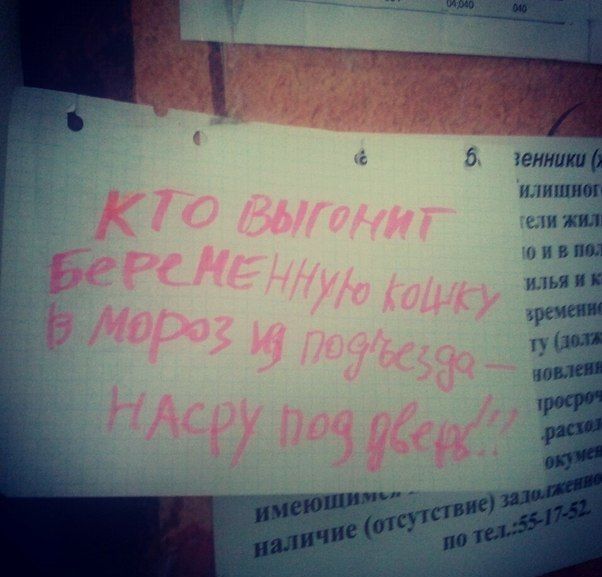 04,040 040
КТО ВЫГОНИТ
БЕРЕМЕННУЮ КОШКУ
В МОРОЗ ИЗ ПОДЪЕЗДА —
НАСРУ ПОД ДВЕРЬ!!!
б. венники (
илищног
ели жил
о и в пол
илья и к
временно
ту (долж
новлен
просроч
расход
окумен
имеющимся
наличие (отсутствие) задолженно
по тел.:55-17-52.